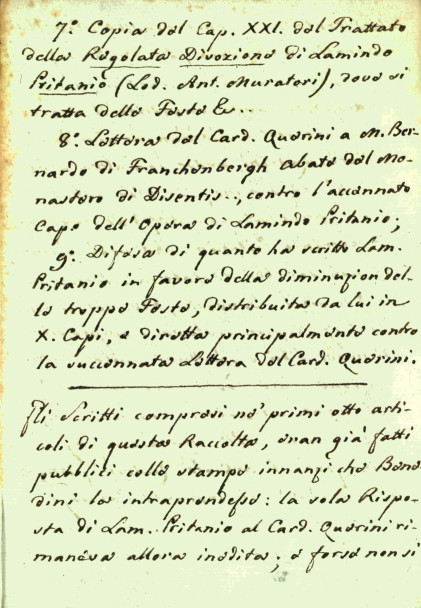 7.° Copia del Cap. XXI. del Trattato
della Regolata Divozione di Lamindo
Pritanio (Lod. Ant. Muratori), dove si
tratta delle Feste &c..
8.° Lettera del Card. Querini a M. Ber-
nardo di Franchenbergh Abate del Mo-
nastero di Disentis.., contro l'accennato
Capo dell'Opera di Lamindo Pritanio;
9.° Difesa di quanto ha scritto Lam.
Pritanio in favore della diminuzion del-
le troppe Feste, distribuita da lui in
X. Capi, e diretta principalmente contro
la succennata Lettera del Card. Querini.
Gli Scritti compresi ne' primi otto arti-
coli di questa Raccolta, eran già fatti
pubblici colle stampe innanzi che Bene-
dini la intraprendesse: la sola Rispo-
sta di Lam. Pritanio al Card. Querini ri-
maneva allora inedita; e forse non si